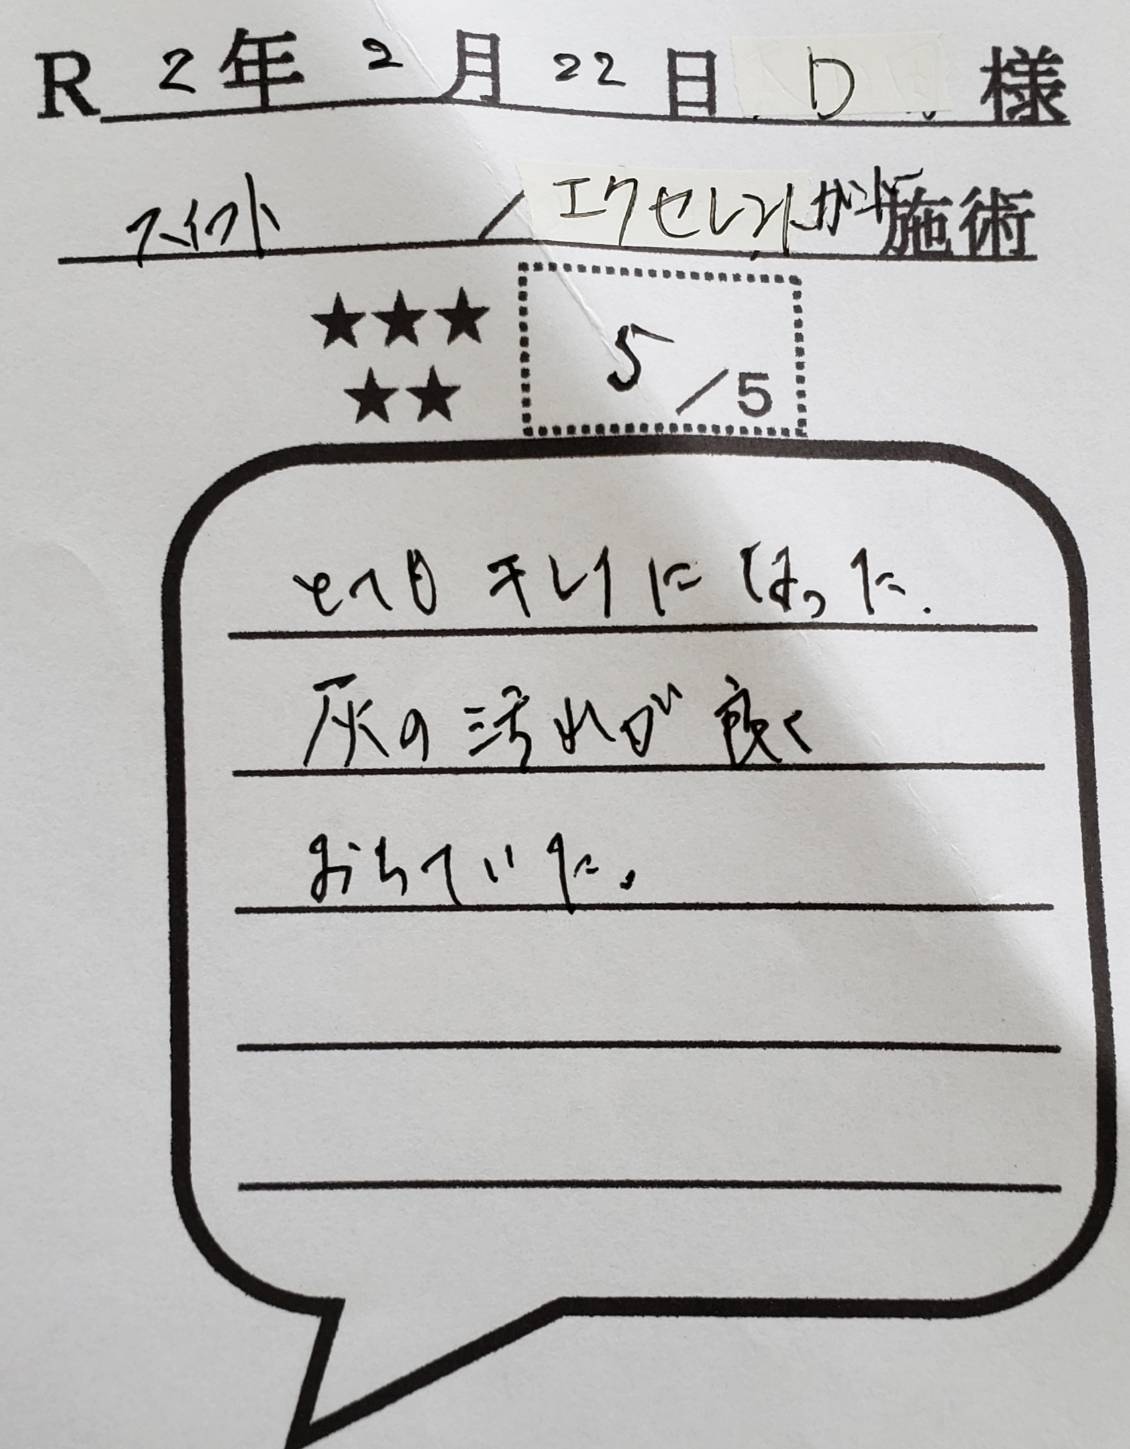 R 2年 2月 22日 D 様
スイフト / エクセレントガード施術
★★★
★★
5/5
とてもキレイになった.
灰の汚れが良く
おちていた。